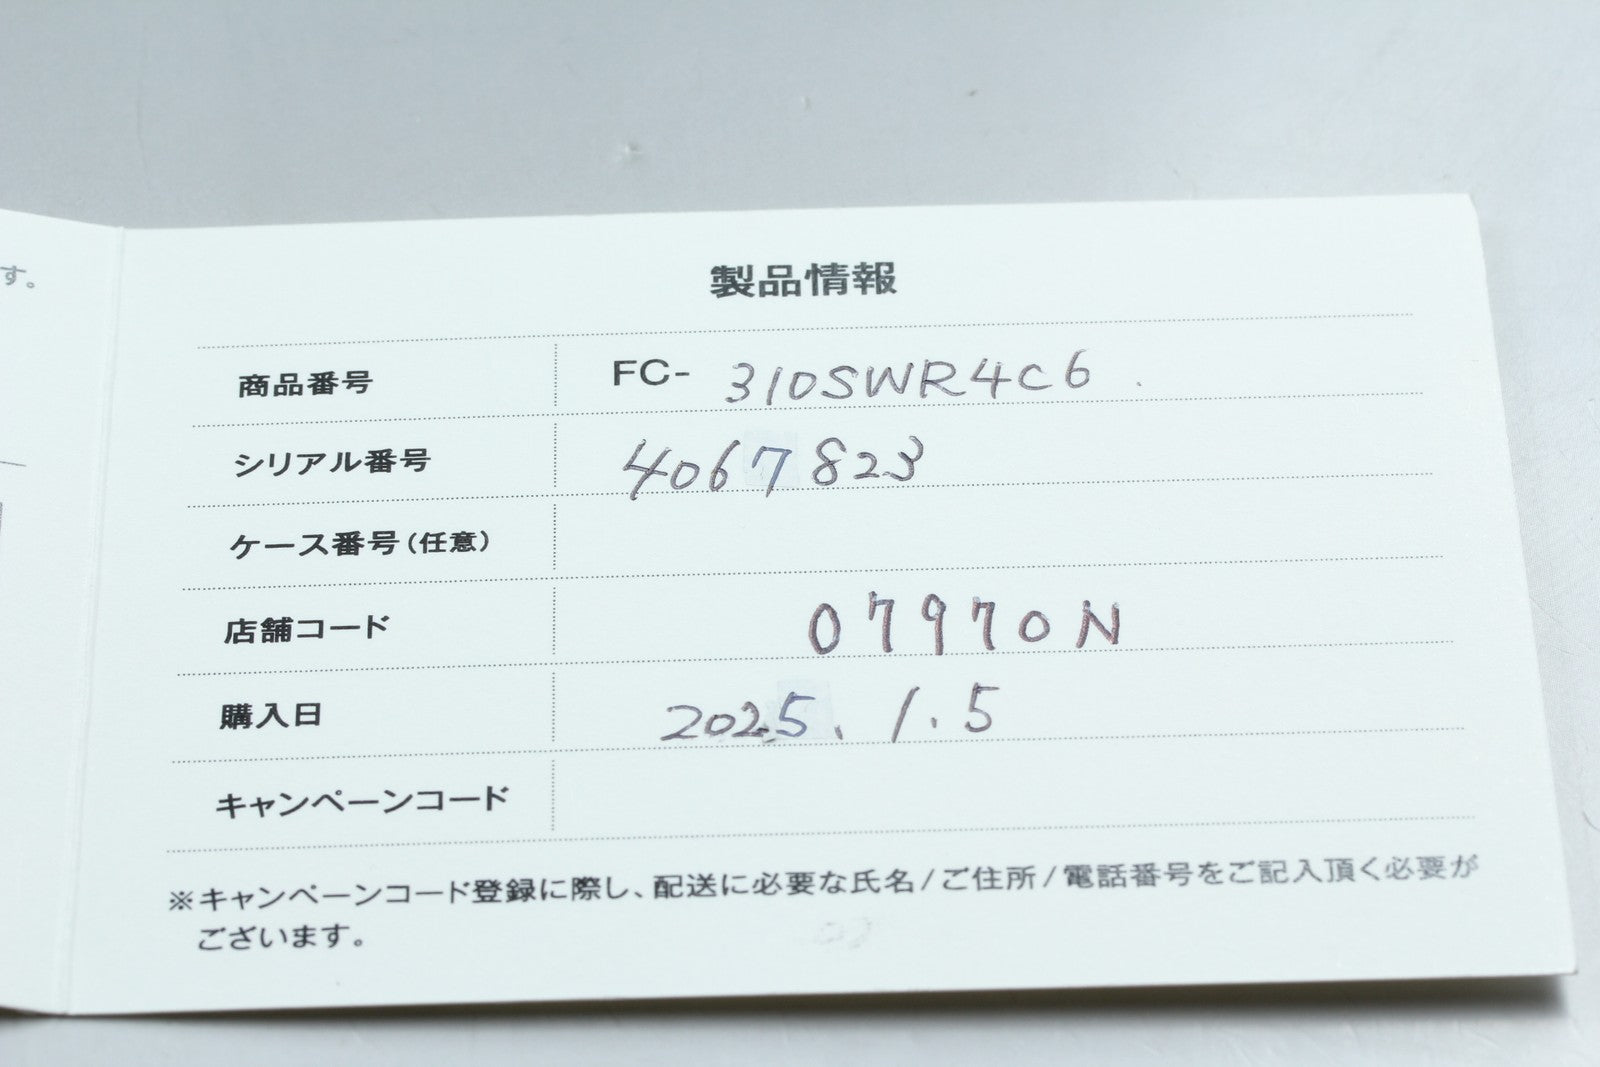 す。
製品情報
商品番号 FC- 310SWR4C6
シリアル番号 4067823
ケース番号(任意)
店舗コード 07970N
購入日 2025.1.5
キャンペーンコード
※キャンペーンコード登録に際し、配送に必要な氏名/ご住所/電話番号をご記入頂く必要が
ございます。